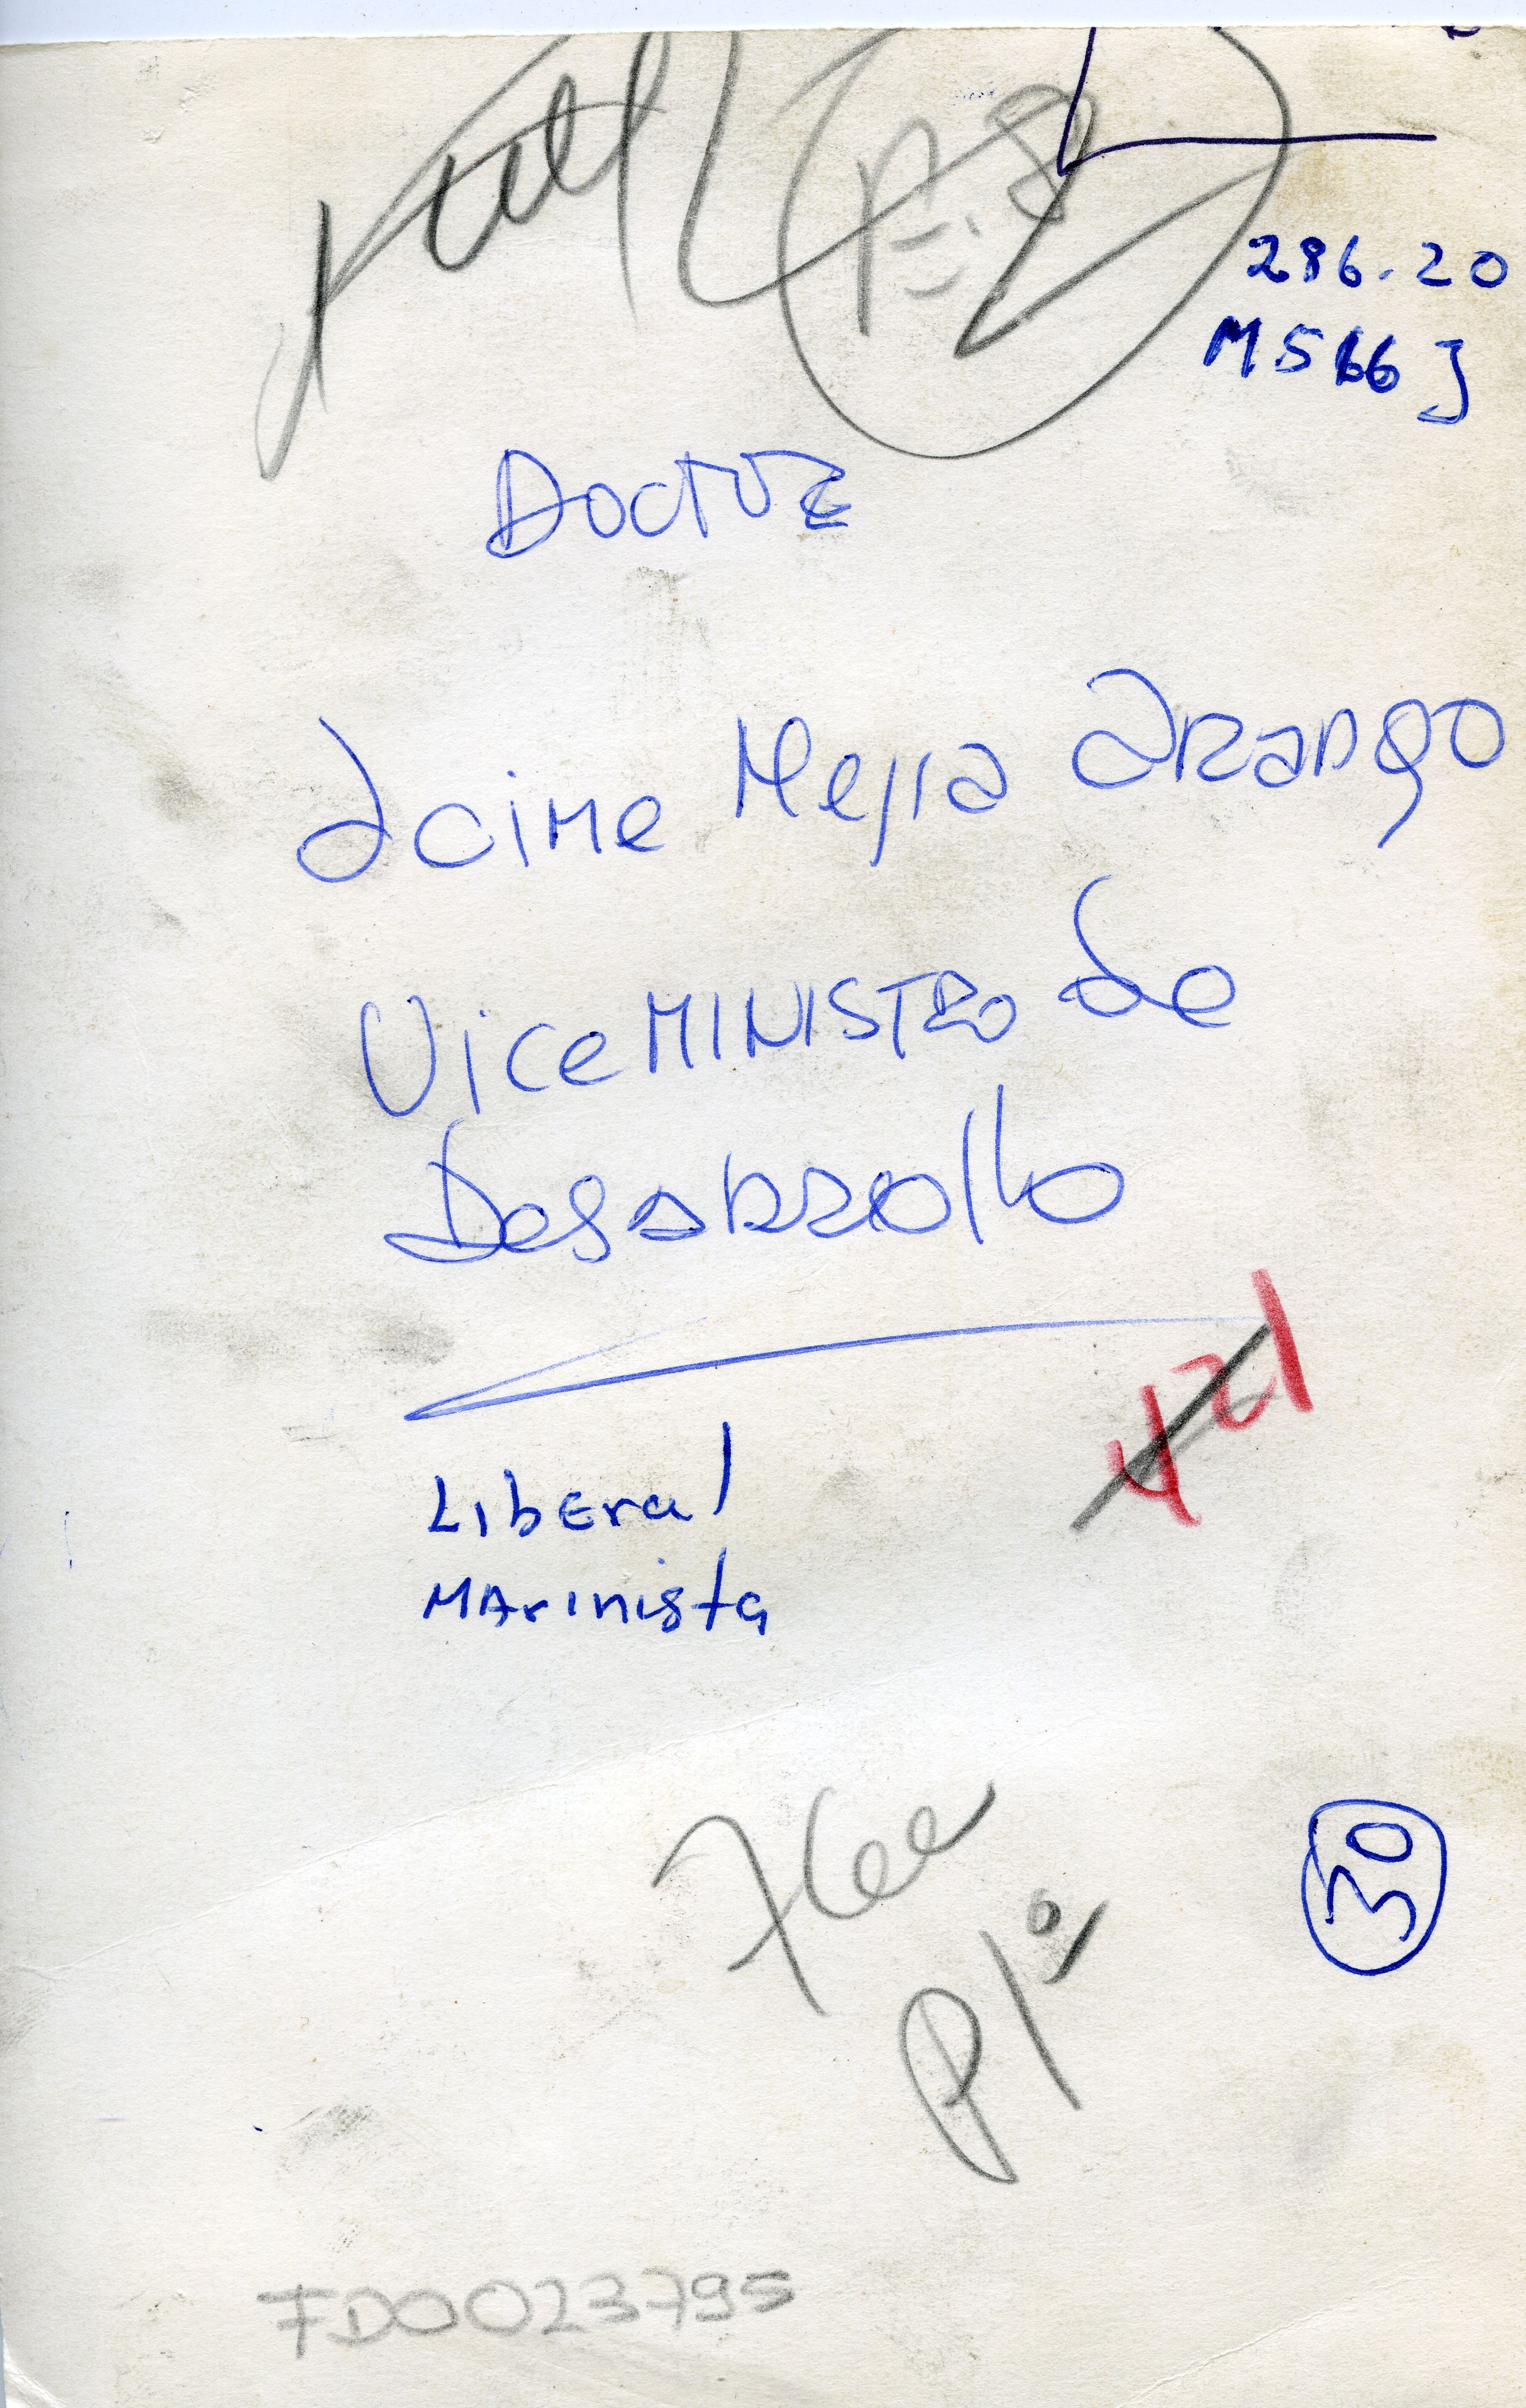 286.20
M566J
Doctor
Jaime Mejia Arango
Viceministro de
Desarrollo
421
Liberal
Marinista
30
FD0023795